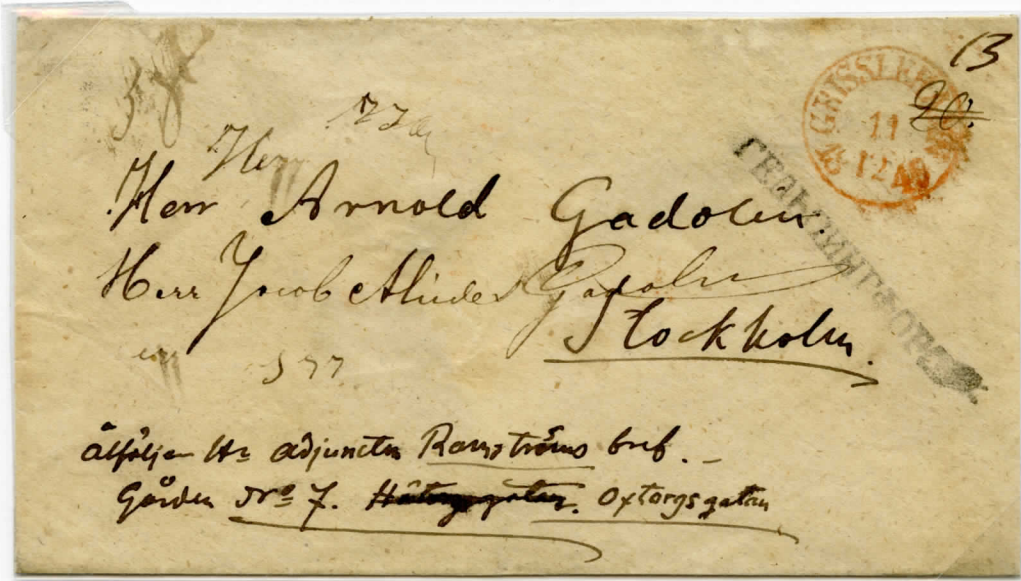 13
20.
GRISSLEHAMN
11
12 48
ГЕЛЬЗИНГФОРСЪ
Herr
Herr Arnold Gadolin.
Herr Jacob Gadolin
Stockholm.
577
åtföljer Hr adjuncten Ramströms bref.
Gården No 7. Oxtorgsgatan